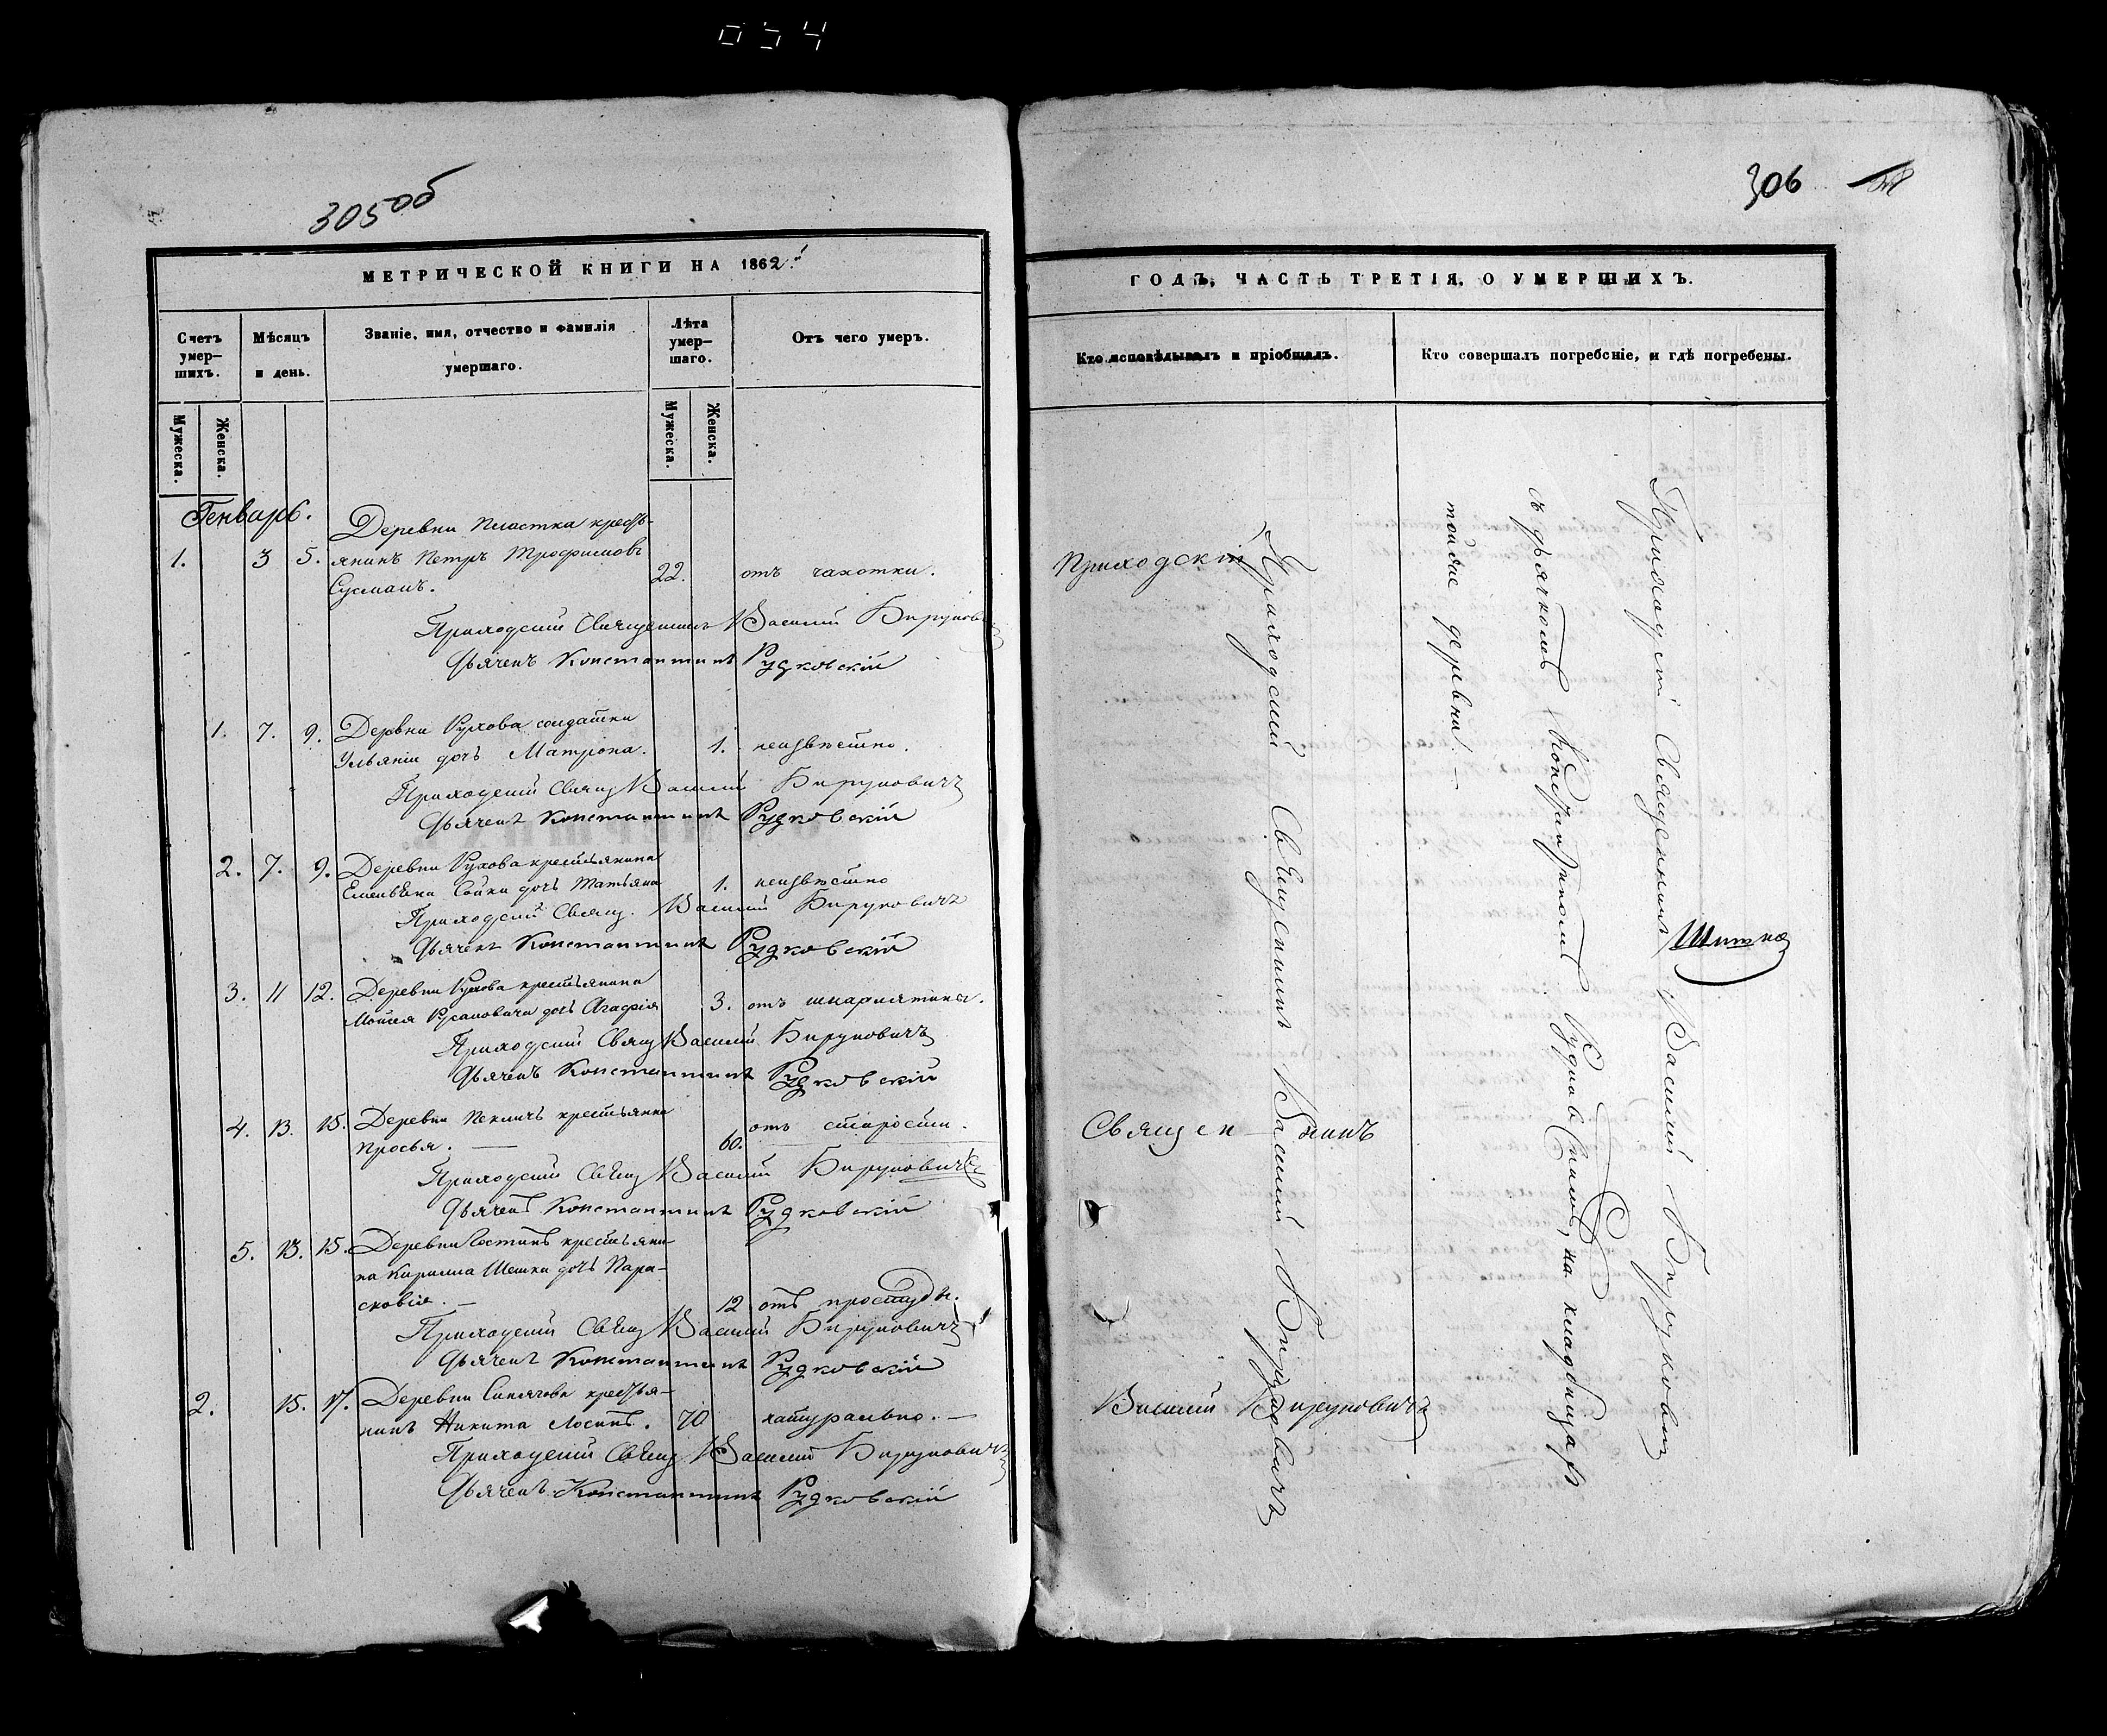 054
305 об
306
МЕТРИЧЕСКОЙ КНИГИ НА 1862й
Счетъ умер-шихъ.
Мѣсяцъ и день.
Званіе, имя, отчество и фамилія умершаго.
Лѣта умер-шаго.
Отъ чего умеръ.
Мужеска.
Женска.
Мужеска.
Женска.
Генварь.
Деревни Пластка кресть-
1. 3 5. янинъ Петръ Трофимовъ
Сусманъ. 22. отъ чахотки.
Приходскій Священникъ Василій Бируковичъ
Дьячекъ Константинъ Рудковскій
1. 7. 9. Деревни Рухова солдатки
Ульяніи дочь Матрона. 1. неизвѣстно.
Приходскій Священ Василій Бируковичъ
Дьячекъ Константинъ Рудковскій
2. 7. 9. Деревни Рухова крестьянина
Емельяна Сайки дочь Татьяна 1. неизвѣстно
Приходскій Священ. Василій Бируковичъ
Дьячекъ Константинъ Рудковскій
3. 11 12. Деревни Рухова крестьянина
Моисея Русановича дочь Агафія 3. отъ шкарлятина.
Приходскій Священ Василій Бируковичъ
Дьячекъ Константинъ Рудковскій
4. 13. 15. Деревни Пекличъ крестьянка
Просья. — 60. отъ старости.
Приходскій Священ Василій Бируковичъ
Дьячекъ Константинъ Рудковскій
5. 13. 15. Деревни Костинъ крестьяни-
на Кирилла Шешки дочь Пара-
сковія. — 12 отъ простуды.
Приходскій Священ Василій Бируковичъ
Дьячекъ Константинъ Рудковскій
2. 15. 17. Деревни Синягова крестья-
нинъ Никита Лосикъ. 70 натурально. —
Приходскій Священ Василій Бируковичъ
Дьячекъ Константинъ Рудковскій
ГОДЪ, ЧАСТЬ ТРЕТІЯ, О УМЕРШИХЪ.
Кто исповѣдывалъ и пріобщалъ.
Кто совершалъ погребеніе, и гдѣ погребены.
Приходскій
Священникъ
Василій Бируковичъ
Приходскій Священникъ Василій Бируковичъ
Приходскій Священникъ Василій Бируковичъ
съ дьячкомъ Константиномъ Рудковскимъ, на кладбищахъ
тойже деревни. —